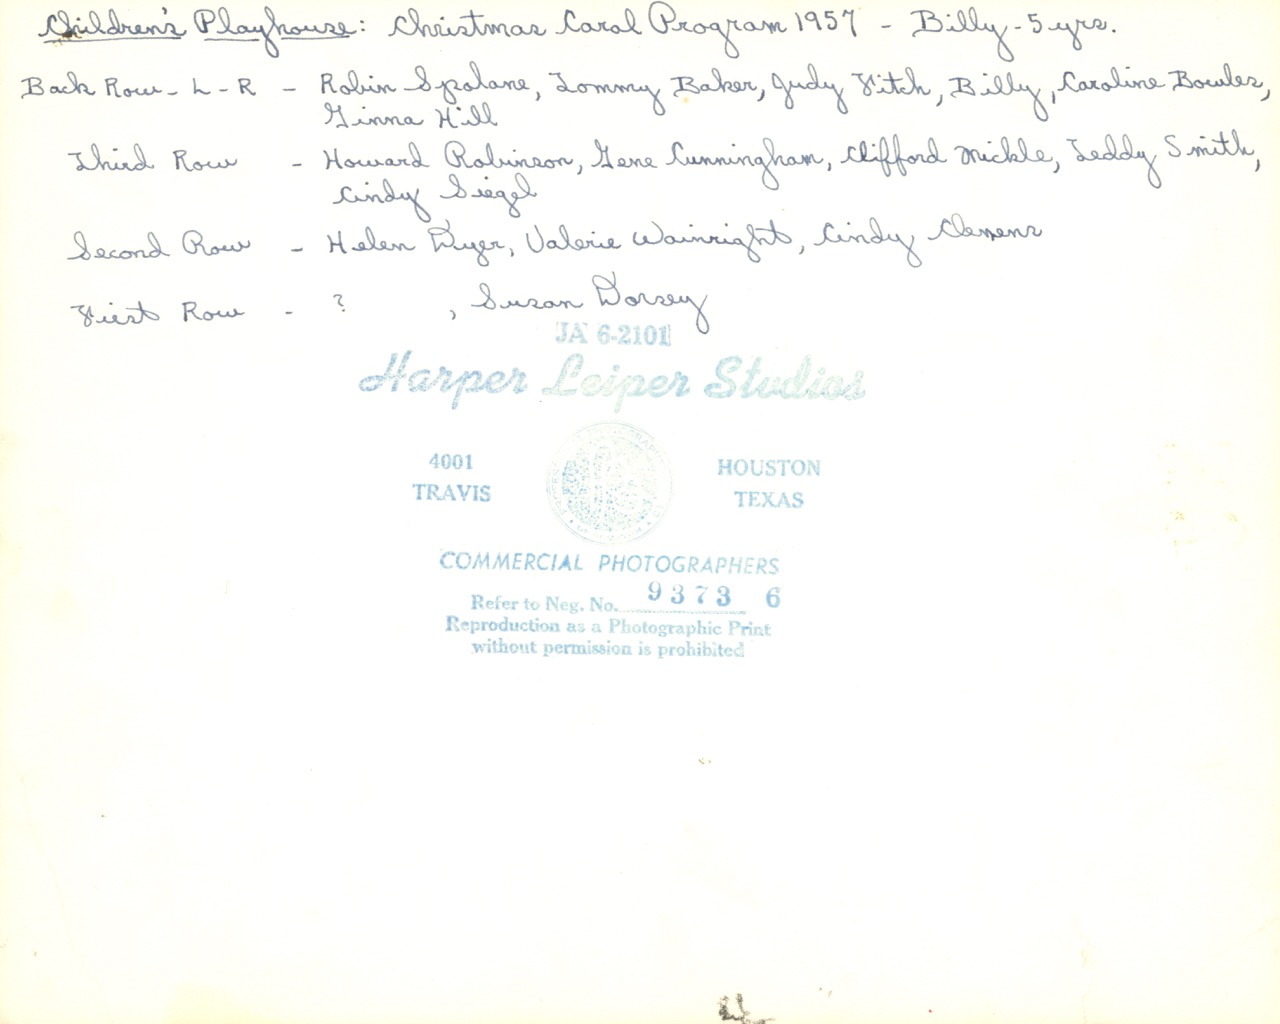 Children's Playhouse: Christmas Carol Program 1957 - Billy - 5 yrs.
Back Row - L - R - Robin Spolane, Tommy Baker, Judy Fitch, Billy, Caroline Bowles,
Ginna Hill
Third Row - Howard Robinson, Gene Cunningham, Clifford Mickle, Teddy Smith,
Cindy Siegel
Second Row - Helen Dyer, Valerie Wainright, Cindy Clemens
First Row - ? , Susan Dorsey
JA 6-2101
Harper Leiper Studios
4001
TRAVIS
HOUSTON
TEXAS
COMMERCIAL PHOTOGRAPHERS
Refer to Neg. No. 9373 6
Reproduction as a Photographic Print
without permission is prohibited